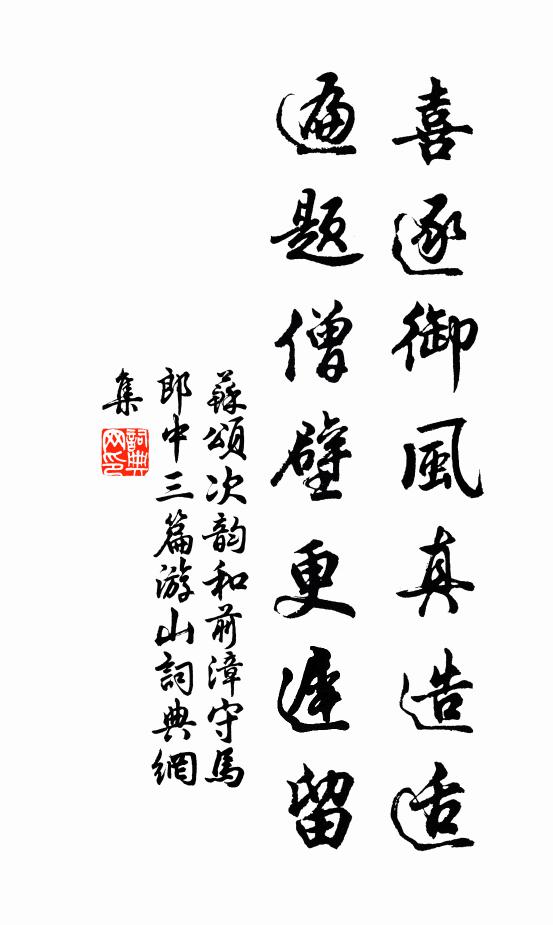 喜逐御風真造适
遍題僧壁更遲留
蘇頌次韵和前漳守馬
郎中三篇游山詞典網
集
詞典
网印